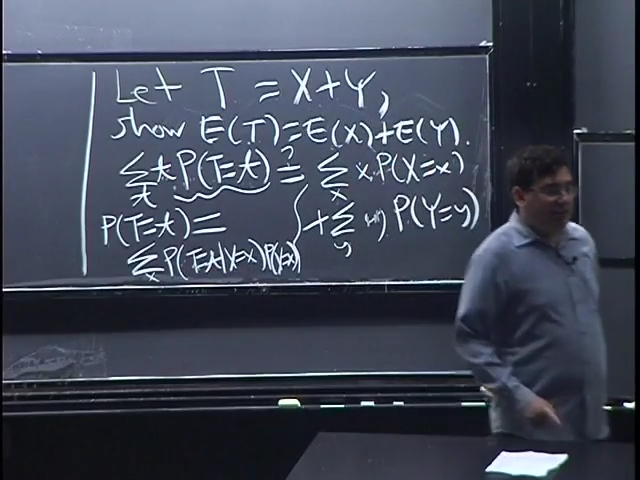 Let T = X+Y,
show E(T)=E(X)+E(Y).
∑_t t P(T=t) =? ∑_x x P(X=x)
+ ∑_y y P(Y=y)
P(T=t)=
∑_x P(T=t|X=x)P(X=x)